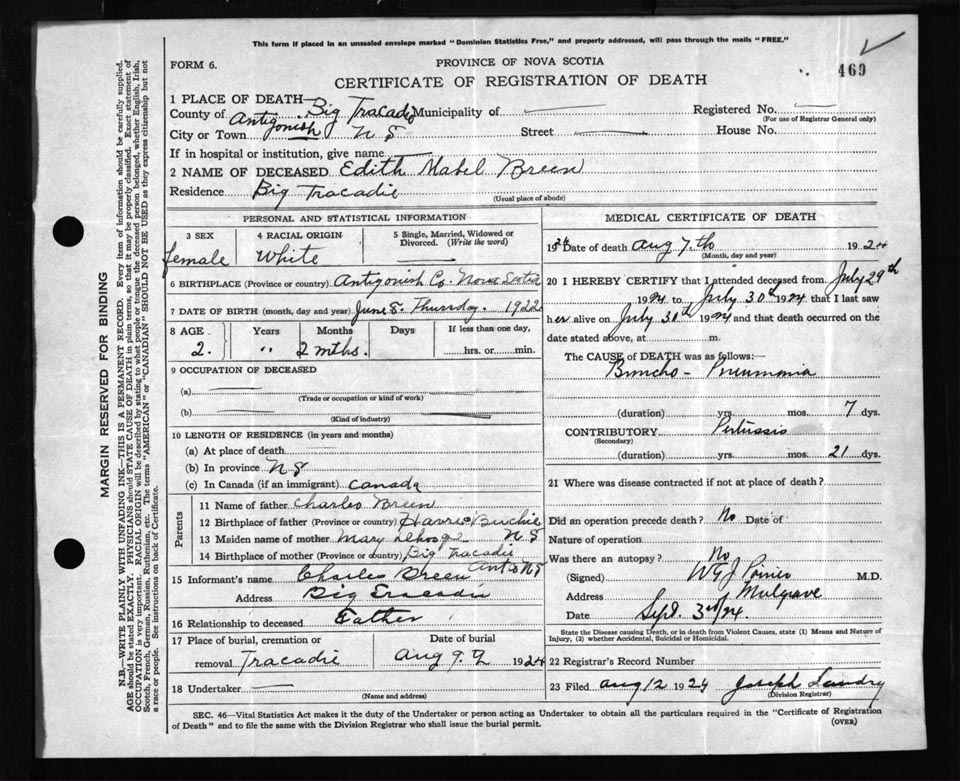 This form if placed in an unsealed envelope marked "Dominion Statistics Free," and properly addressed, will pass through the mails "FREE."
FORM 6.
PROVINCE OF NOVA SCOTIA
469
CERTIFICATE OF REGISTRATION OF DEATH
1 PLACE OF DEATH—
County of Antigonish Big Tracadie Municipality of Registered No.
(For use of Registrar General only)
City or Town N S Street House No.
If in hospital or institution, give name
2 NAME OF DECEASED Edith Mabel Breen
Residence Big Tracadie
(Usual place of abode)
PERSONAL AND STATISTICAL INFORMATION
3 SEX 4 RACIAL ORIGIN 5 Single, Married, Widowed or Divorced. (Write the word)
female White
6 BIRTHPLACE (Province or country) Antigonish Co. Nova Scotia
7 DATE OF BIRTH (month, day and year) June 5. Thursday. 1922
8 AGE Years Months Days If less than one day,
2. " 2 mths. hrs. or min.
9 OCCUPATION OF DECEASED
(a)
(Trade or occupation or kind of work)
(b)
(Kind of industry)
10 LENGTH OF RESIDENCE (in years and months)
(a) At place of death
(b) In province N S
(c) In Canada (if an immigrant) Canada
Parents
11 Name of father Charles Breen
12 Birthplace of father (Province or country) Havre Buchie
13 Maiden name of mother Mary N S
14 Birthplace of mother (Province or country) Big Tracadie
15 Informant's name Charles Breen Ant Co N S
Address Big Tracadie
16 Relationship to deceased Father
17 Place of burial, cremation or removal Tracadie Date of burial Aug 9th 1924
18 Undertaker
(Name and address)
MEDICAL CERTIFICATE OF DEATH
19 Date of death Aug 7.th 1924
(Month, day and year)
20 I HEREBY CERTIFY that I attended deceased from July 29th
1924 to July 30th 1924 that I last saw
her alive on July 30th 1924 and that death occurred on the
date stated above, at m.
The CAUSE of DEATH was as follows:—
Broncho- Pneumonia
(duration) yrs. mos. 7 dys.
CONTRIBUTORY Pertussis
(Secondary)
(duration) yrs. mos. 21 dys.
21 Where was disease contracted if not at place of death?
Did an operation precede death? No Date of
Nature of operation
Was there an autopsy? No
(Signed) W G J Poirier M.D.
Address Mulgrave
Date Sept. 3rd/24.
State the Disease causing Death, or in death from Violent Causes, state (1) Means and Nature of
Injury, (2) whether Accidental, Suicidal or Homicidal.
22 Registrar's Record Number
23 Filed Aug 12 1924 Joseph Landry
(Division Registrar)
SEC. 46—Vital Statistics Act makes it the duty of the Undertaker or person acting as Undertaker to obtain all the particulars required in the "Certificate of Registration
of Death" and to file the same with the Division Registrar who shall issue the burial permit.
(OVER)
MARGIN RESERVED FOR BINDING
N.B.—WRITE PLAINLY WITH UNFADING INK—THIS IS A PERMANENT RECORD. Every item of information should be carefully supplied.
AGE should be stated EXACTLY. PHYSICIANS should STATE CAUSE OF DEATH in plain terms, so that it may be properly classified. Exact statement of
OCCUPATION is very important. RACIAL ORIGIN will be described by stating to what people or tongue the deceased person belonged, whether English, Irish,
Scotch, French, German, Russian, Ruthenian, etc. The terms "AMERICAN" or "CANADIAN" SHOULD NOT BE USED as they express citizenship but not
a race or people. See instructions on back of Certificate.